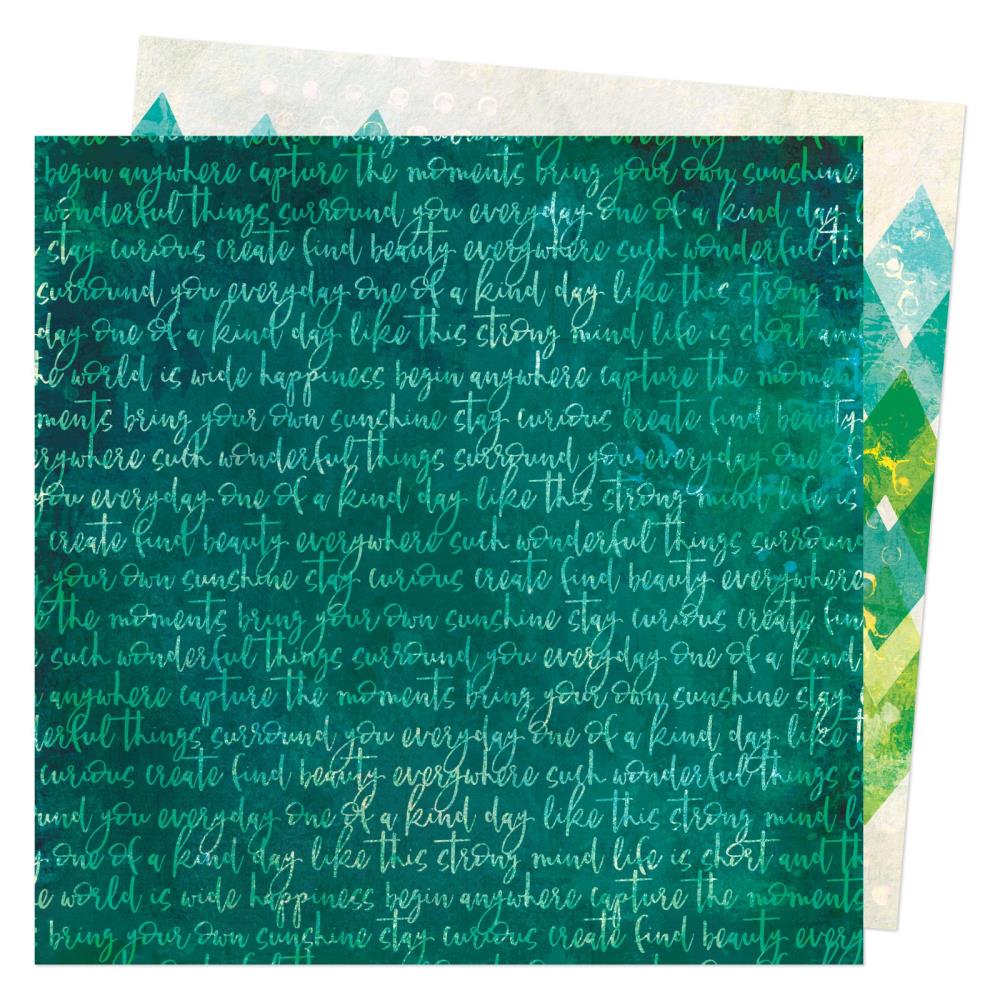 begin anywhere capture the moments bring your own sunshine
wonderful things surround you everyday one of a kind day
stay curious create find beauty everywhere such wonderful
surround you everyday one of a kind day like this strong
day one of a kind day like this strong mind life is short
world is wide happiness begin anywhere capture the
bring your own sunshine stay curious create find beauty
such wonderful things surround you everyday one
you everyday one of a kind day like this strong mind life is
create find beauty everywhere such wonderful things
your own sunshine stay curious create find beauty everywhere
the moments bring your own sunshine stay curious create
such wonderful things surround you everyday one of a kind
anywhere capture the moments bring your own sunshine stay
things surround you everyday one of a kind day like
curious create find beauty everywhere such wonderful things
you everyday one of a kind day like this strong mind
one of a kind day like this strong mind life is short and
world is wide happiness begin anywhere capture the moments
bring your own sunshine stay curious create find beauty